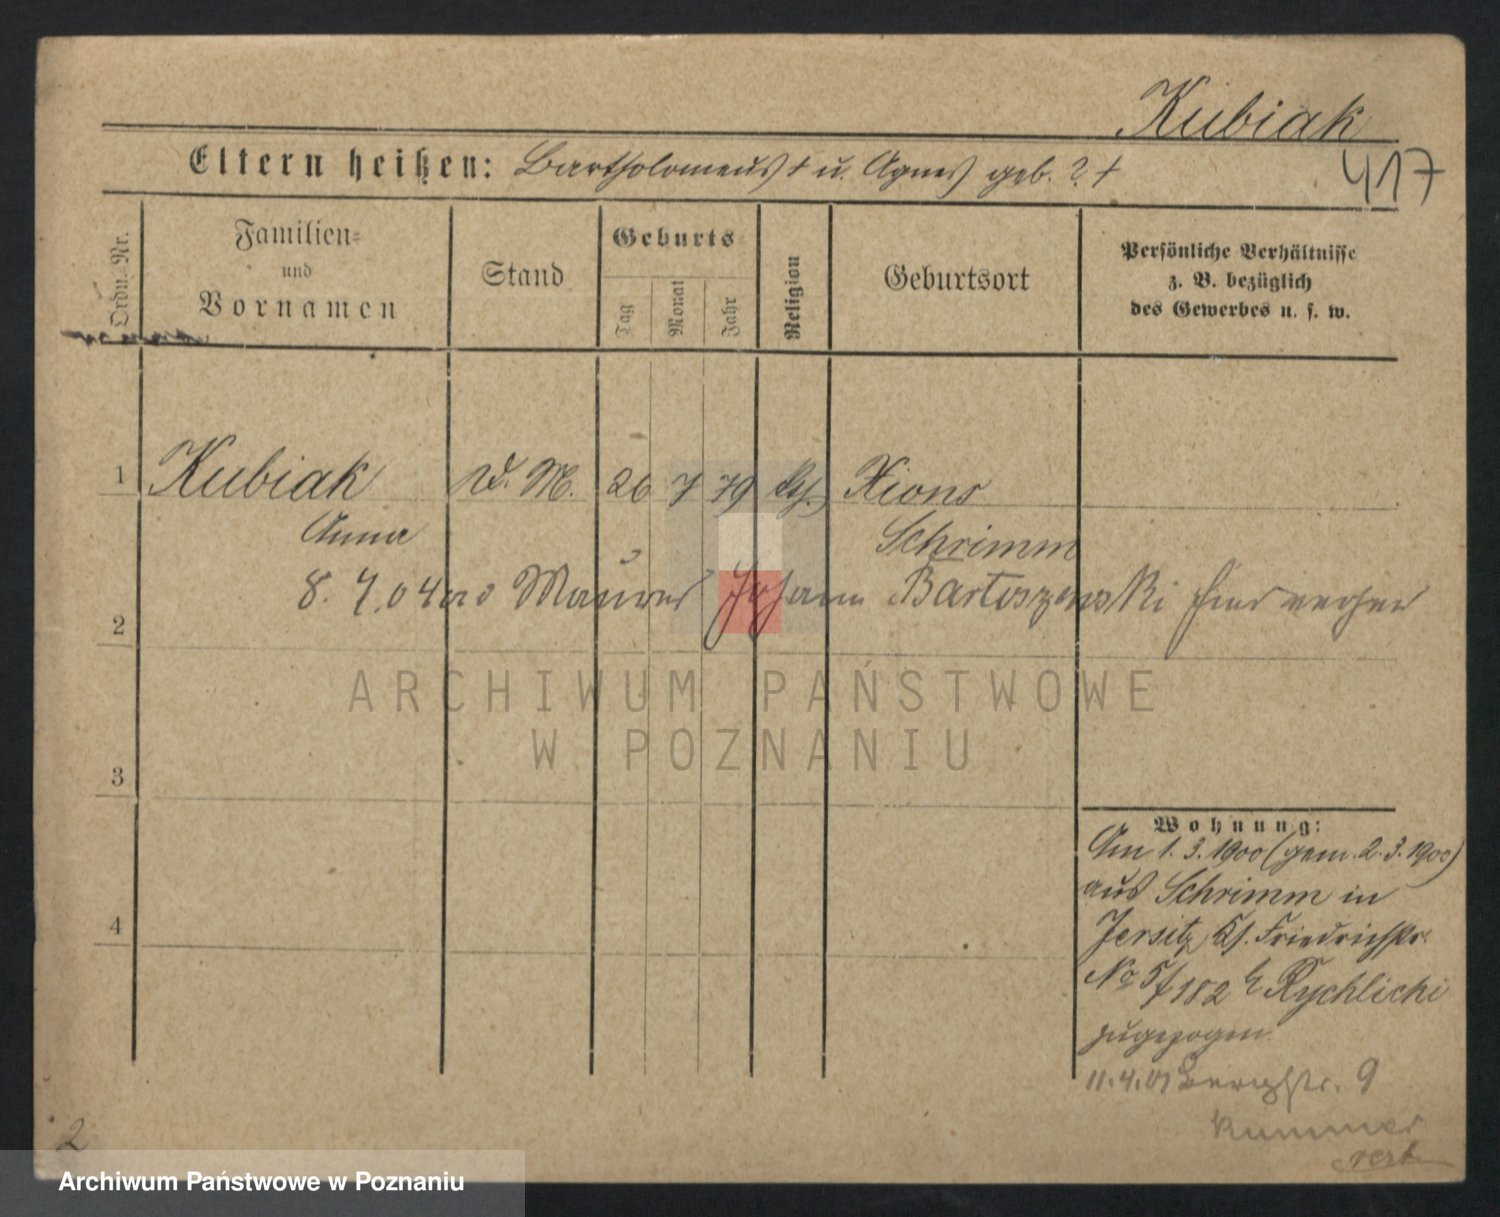 Kubiak
417
Eltern heißen: Bartholomeus † u. Agnes geb. ? †
Ordn.-Nr.
Familien- und Vornamen
Stand
Geburts-
Tag
Monat
Jahr
Religion
Geburtsort
Persönliche Verhältnisse
z. B. bezüglich
des Gewerbes u. s. w.
1 Kubiak D. M. 26 7 79 kth. Xions
Anna Schrimm
8. 7. 04 Maurer Johann Bartoszewski hier
2
3
4
Wohnung:
Am 1. 3. 1900 (gem. 2. 3. 1900)
aus Schrimm in
Jersitz, Ks. Friedrichstr.
No 5/182 b Rychlicki
zugezogen
11. 4. 01 Bergstr. 9
Kummer
2
ARCHIWUM PAŃSTWOWE
W POZNANIU
Archiwum Państwowe w Poznaniu